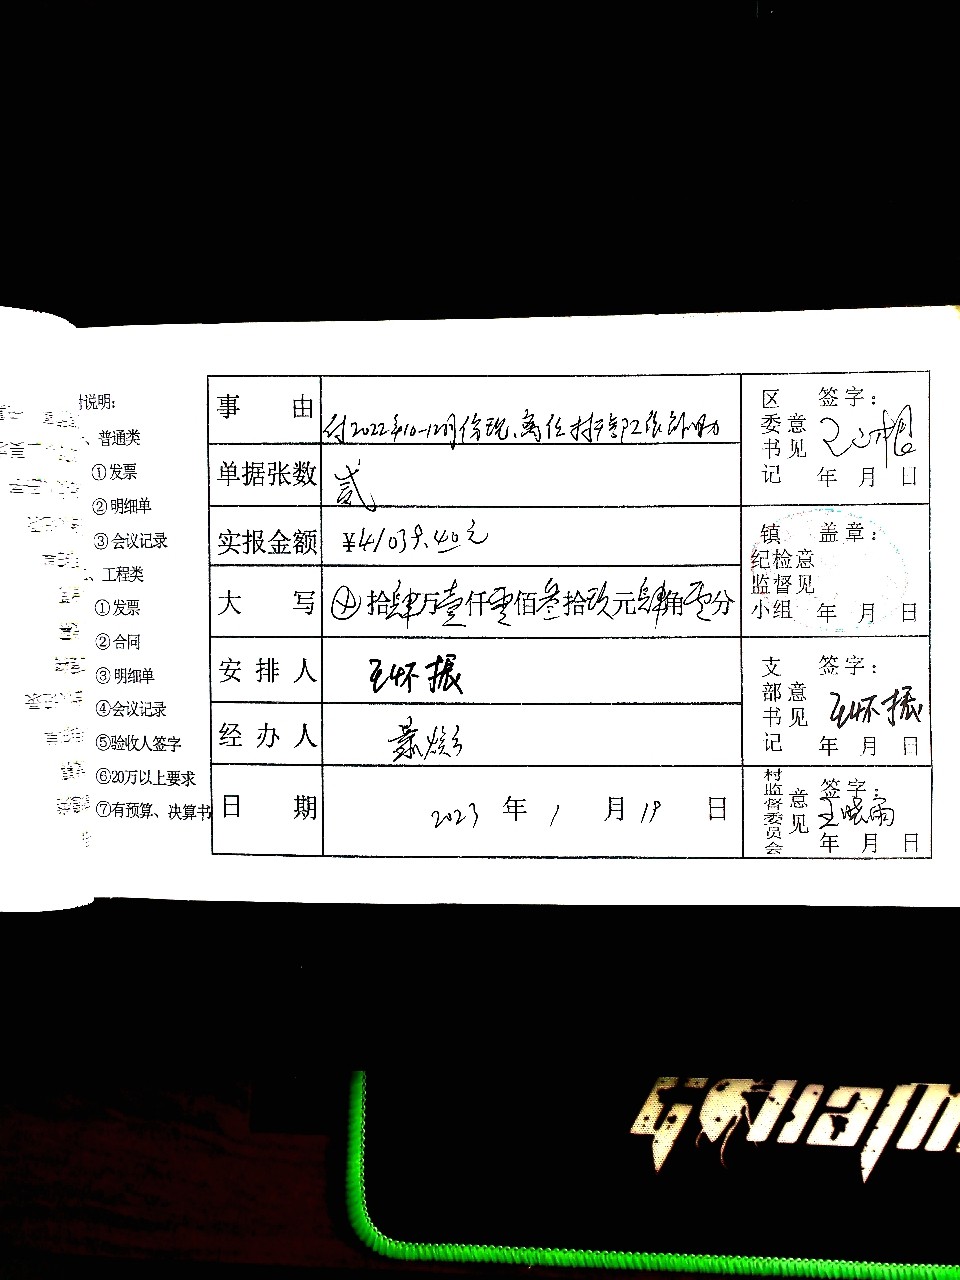 附说明:
一、普通类
①发票
②明细单
③会议记录
二、工程类
①发票
②合同
③明细单
④会议记录
⑤验收人签字
⑥20万以上要求
⑦有预算、决算书
事由 付2022年10-12月份现、离任村干部工资补助
单据张数 贰
实报金额 ¥41039.40元
大写 ⊕拾肆万壹仟零佰叁拾玖元肆角零分
安排人 王怀振
经办人
日期 2023年1月19日
区委书记意见 签字:
年月日
镇纪检监督小组意见 盖章:
年月日
支部书记意见 签字:
王怀振
年月日
村监督委员会意见 签字:
王晓雨
年月日